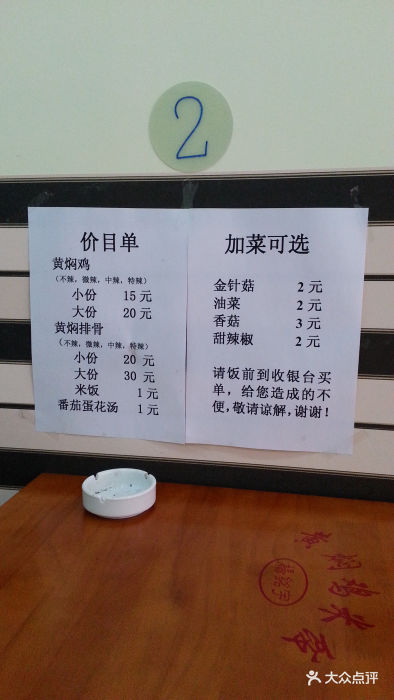 2
价目单
黄焖鸡
(不辣，微辣，中辣，特辣)
小份 15 元
大份 20 元
黄焖排骨
(不辣，微辣，中辣，特辣)
小份 20 元
大份 30 元
米饭 1 元
番茄蛋花汤 1 元
加菜可选
金针菇 2 元
油菜 2 元
香菇 3 元
甜辣椒 2 元
请饭前到收银台买
单，给您造成的不
便，敬请谅解，谢谢！
黄焖鸡米饭
大众点评